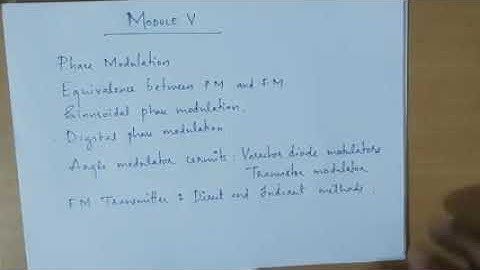 MODULE V
Phase Modulation
Equivalence between PM and FM
Sinusoidal phase modulation.
Digital phase modulation
Angle modulator circuits : Varactor diode modulators
Transistor modulator
FM Transmitter : Direct and Indirect methods.